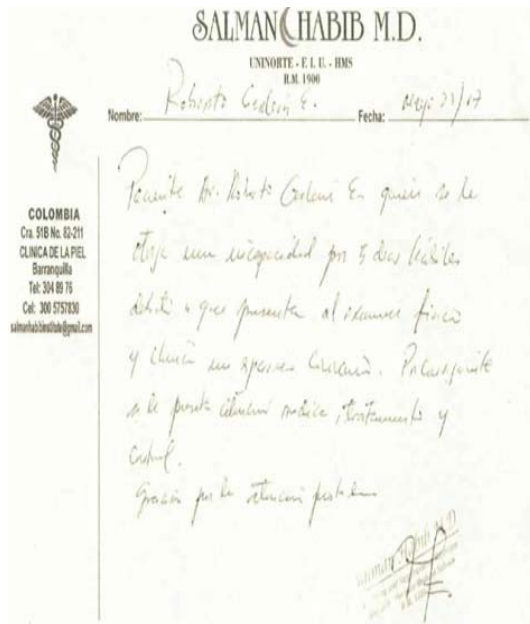 SALMAN HABIB M.D.
UNINORTE - E.L.U. - HMS
R.M. 1900
Nombre: Roberto E. Fecha: 23/07
COLOMBIA
Cra. 51B No. 82-211
CLINICA DE LA PIEL
Barranquilla
Tel: 304 89 76
Cel: 300 5757830
salmanhabibinstitute@gmail.com
Paciente Dr. Roberto E. quien se le
otorga una incapacidad por 5 dias habiles
debido a que presenta al examen fisico
y clinica un
se le presta atencion medica, tratamiento y
control.
Gracias por la atencion